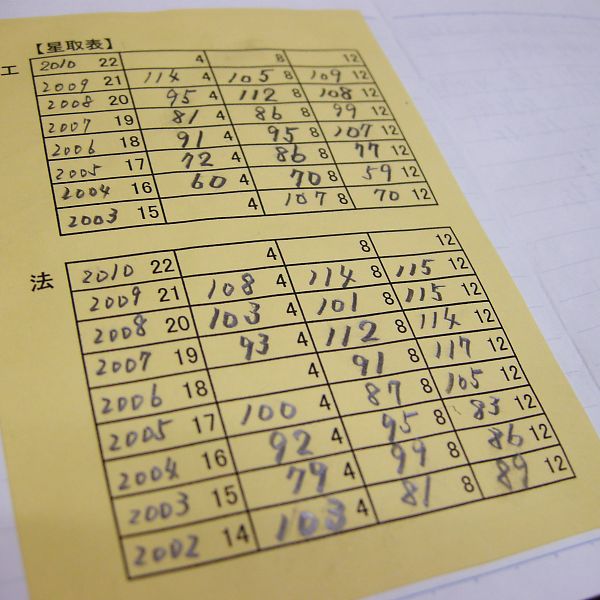 【星取表】
工 2010 22 4 8 12
2009 21 114 4 105 8 109 12
2008 20 95 4 112 8 108 12
2007 19 81 4 86 8 99 12
2006 18 91 4 95 8 107 12
2005 17 72 4 86 8 77 12
2004 16 60 4 70 8 59 12
2003 15 4 107 8 70 12
法 2010 22 4 8 12
2009 21 108 4 114 8 115 12
2008 20 103 4 101 8 115 12
2007 19 93 4 112 8 114 12
2006 18 4 91 8 117 12
2005 17 100 4 87 8 105 12
2004 16 92 4 95 8 83 12
2003 15 79 4 99 8 86 12
2002 14 103 4 81 8 89 12